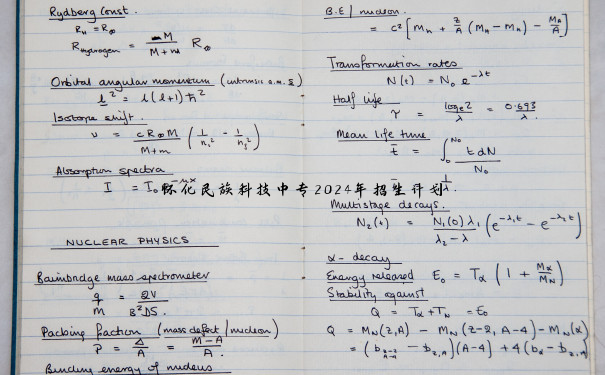 Rydberg Const.
R_H = R_∞
R_Hydrogen = M / (M + m) R_∞
Orbital angular momentum (intrinsic a.m. s)
l² = l(l+1)ħ²
Isotope shift.
ν = cR_∞M / (M+m) (1/n₁² - 1/n₂²)
Absorption spectra
I = I₀
怀化民族科技中专2024年招生计划
NUCLEAR PHYSICS
Bainbridge mass spectrometer
q/M = 2V / B²DS.
Packing fraction (mass defect / nucleon)
P = Δ/A = (M-A)/A.
Binding energy of nucleus
B.E / nucleon.
= c² [M_n + Z/A (M_H - M_n) - M_A/A]
Transformation rates
N(t) = N₀ e^-λt
Half life
τ = log_e 2 / λ = 0.693 / λ.
Mean life time
t̄ = ∫₀^N₀ t dN / N₀
1/λ.
Multistage decays.
N₂(t) = N₁(0) λ₁ / (λ₂ - λ) (e^-λ₁t - e^-λ₂t)
α - decay
Energy released E₀ = T_α (1 + M_α/M_N)
Stability against
Q = T_α + T_N = E₀
Q = M_N(Z,A) - M_N(Z-2, A-4) - M_N(α)